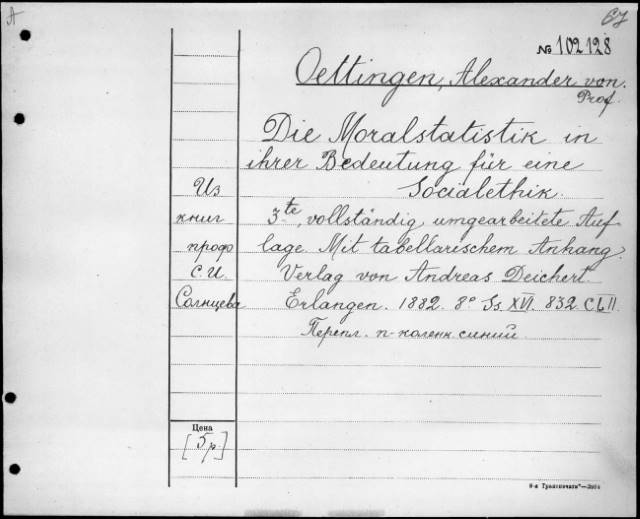 А
№ 102128
Oettingen, Alexander von.
Prof.
Die Moralstatistik in
ihrer Bedeutung für eine
Socialethik.
Из
книг
проф
С.И.
Солнцева
3te, vollständig umgearbeitete Auf
lage. Mit tabellarischem Anhang.
Verlag von Andreas Deichert.
Erlangen. 1882. 8° Ss. XVI. 832. CLII
Перепл. п-коленк. синий.
Цена
[5 р.]